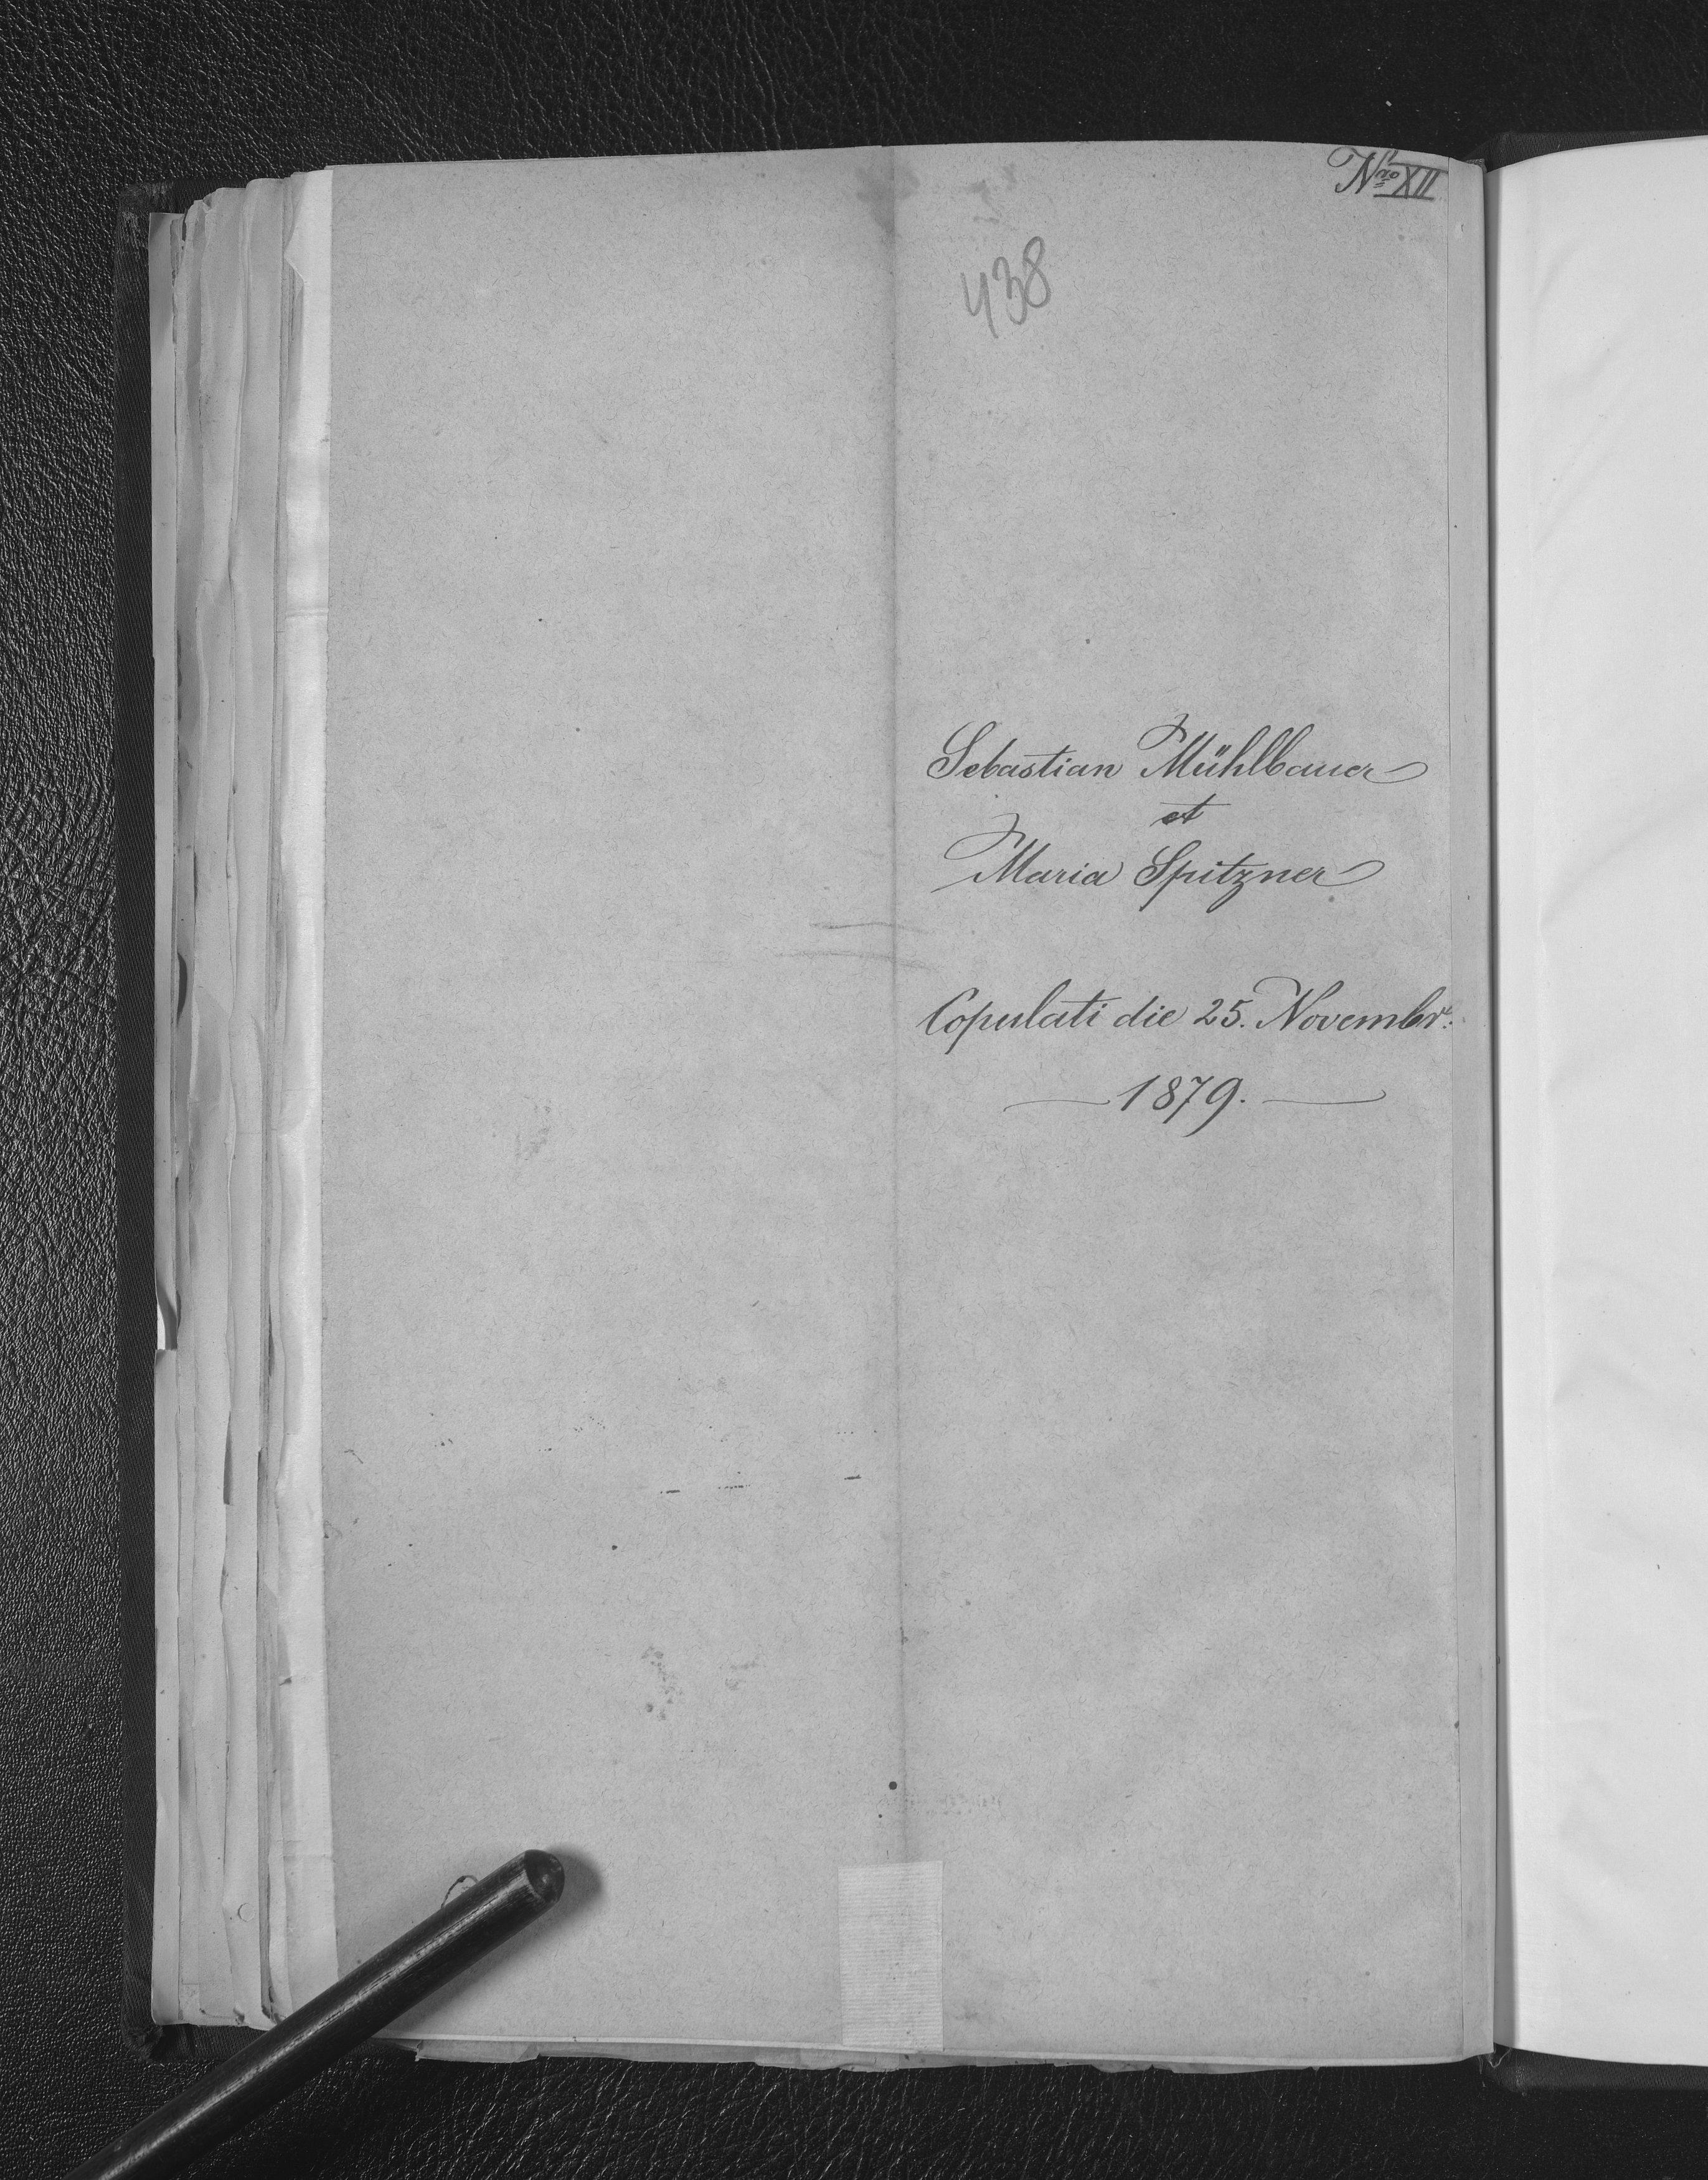 Nro XII
438
Sebastian Mühlbauer
et
Maria Spitzner
Copulati die 25. Novembr.
1879.